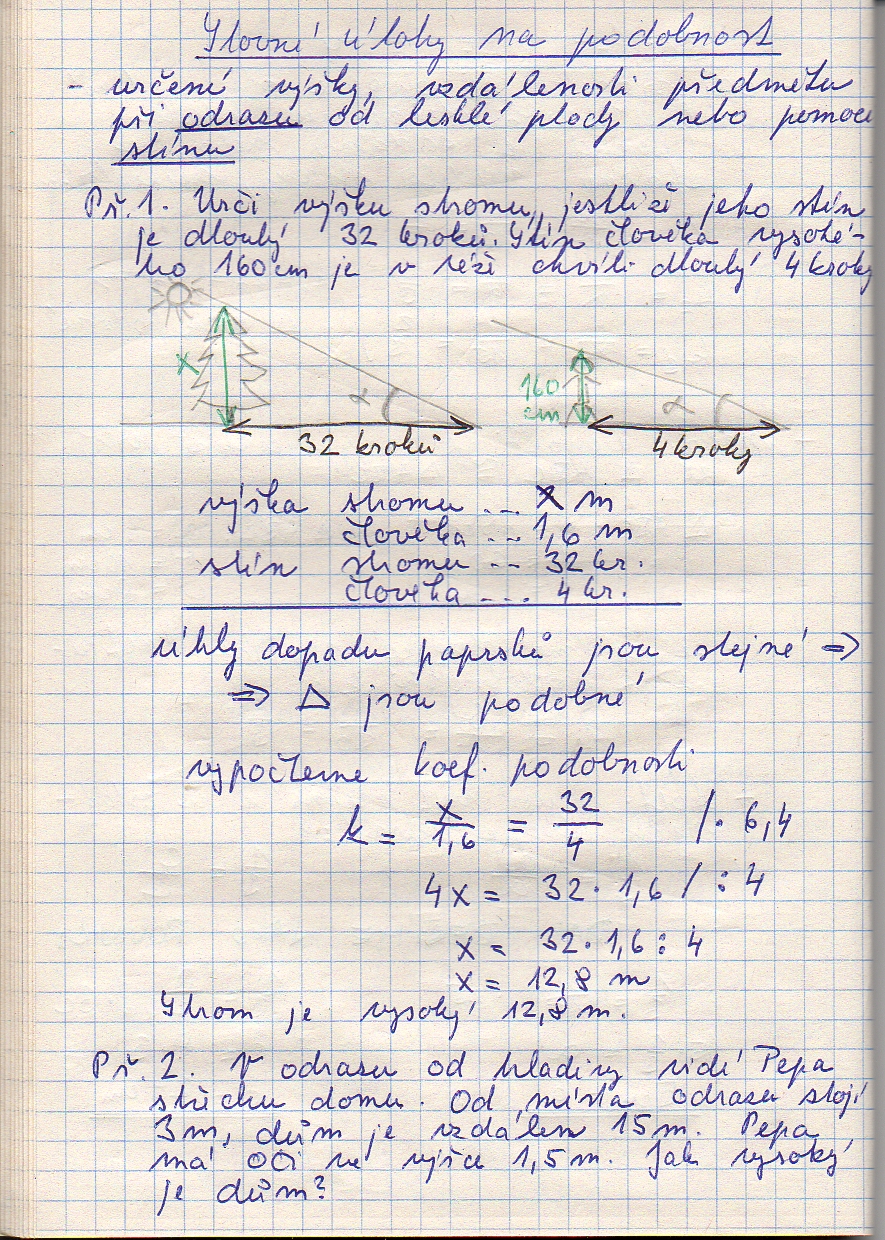 Slovní úlohy na podobnost
- určení výšky, vzdálenosti předmětu
při odrazu od lesklé plochy nebo pomocí
stínu
Př. 1. Urči výšku stromu, jestliže jeho stín
je dlouhý 32 kroků. Stín člověka vysoké-
ho 160 cm je v téže chvíli dlouhý 4 kroky
x
α
32 kroků
160
cm
α
4 kroky
výška stromu ... x m
člověka ... 1,6 m
stín stromu ... 32 kr.
člověka .... 4 kr.
úhly dopadu paprsků jsou stejné ⇒
⇒ △ jsou podobné
vypočteme koef. podobnosti
k = x/1,6 = 32/4 /· 6,4
4x = 32 · 1,6 / : 4
x = 32 · 1,6 : 4
x = 12,8 m
Strom je vysoký 12,8 m.
Př. 2. V odrazu od hladiny vidí Pepa
střechu domu. Od místa odrazu stojí
3m, dům je vzdálen 15 m. Pepa
má oči ve výšce 1,5 m. Jak vysoký
je dům?